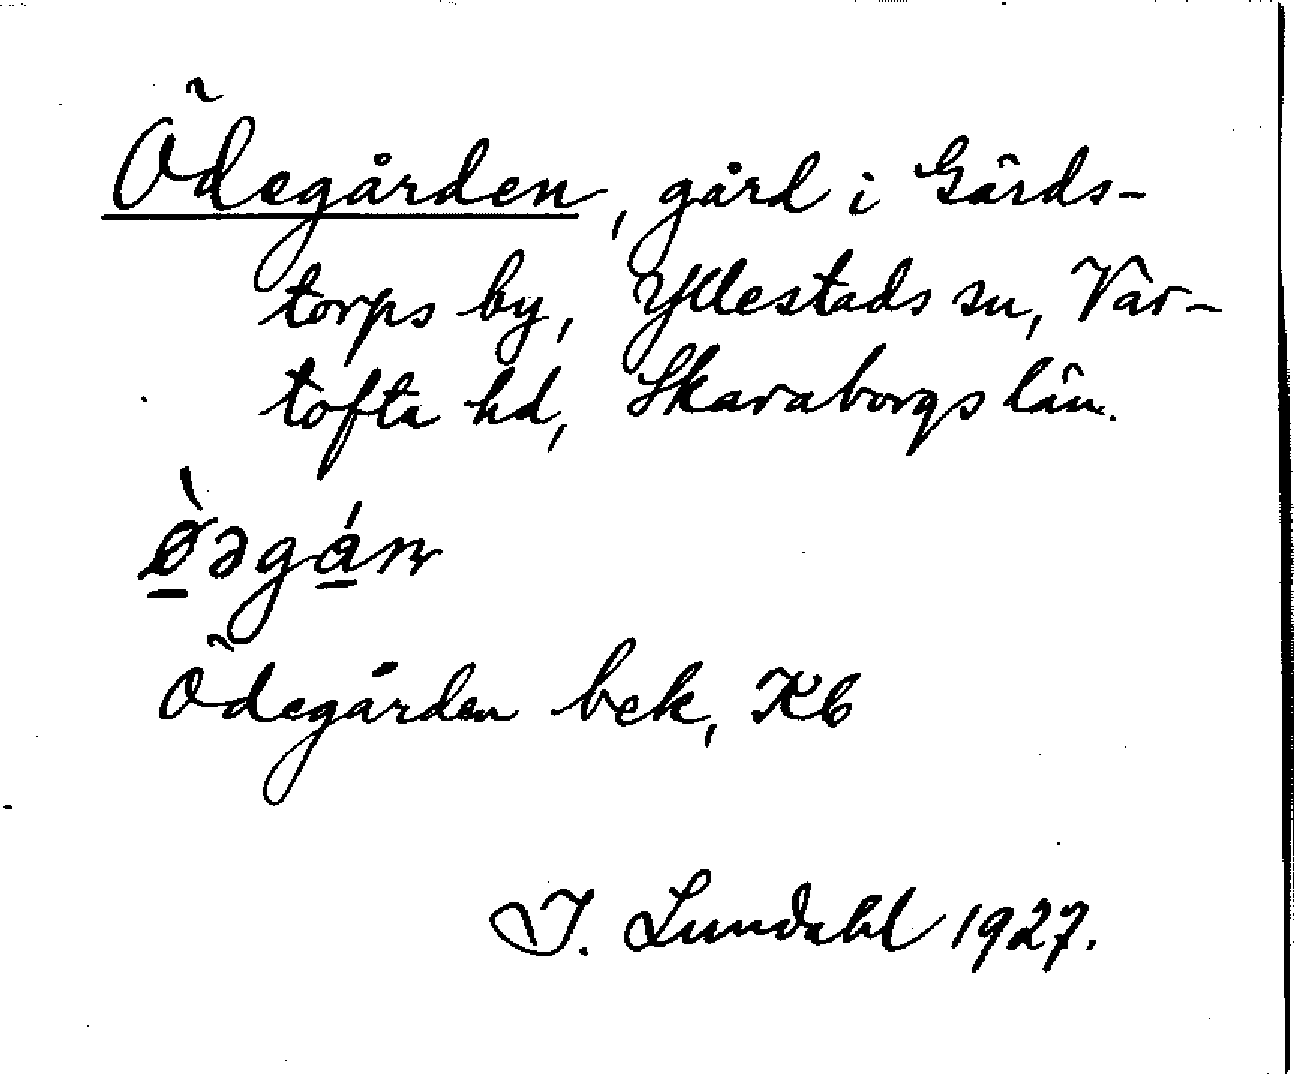 Ödegården, gård i Gärds-
torps by, Yllestads sn, Var-
tofta hd, Skaraborgs län.
ø̱̀əgá̱ɳ
Ödegården bek, Kb
I. Lundahl 1927.